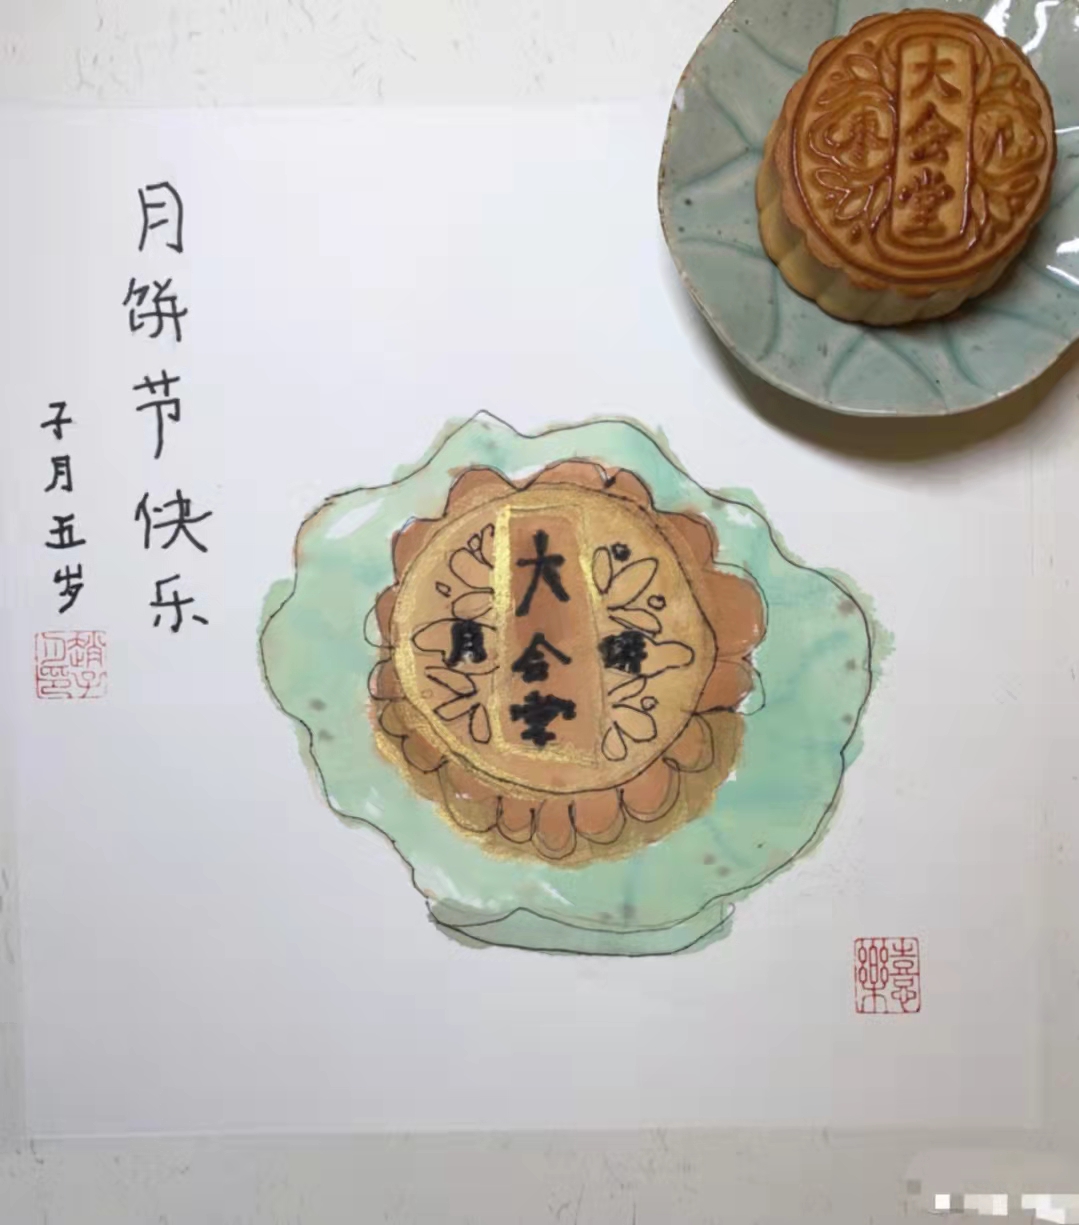 月饼节快乐
子月五岁
大会堂
大会堂
月
饼